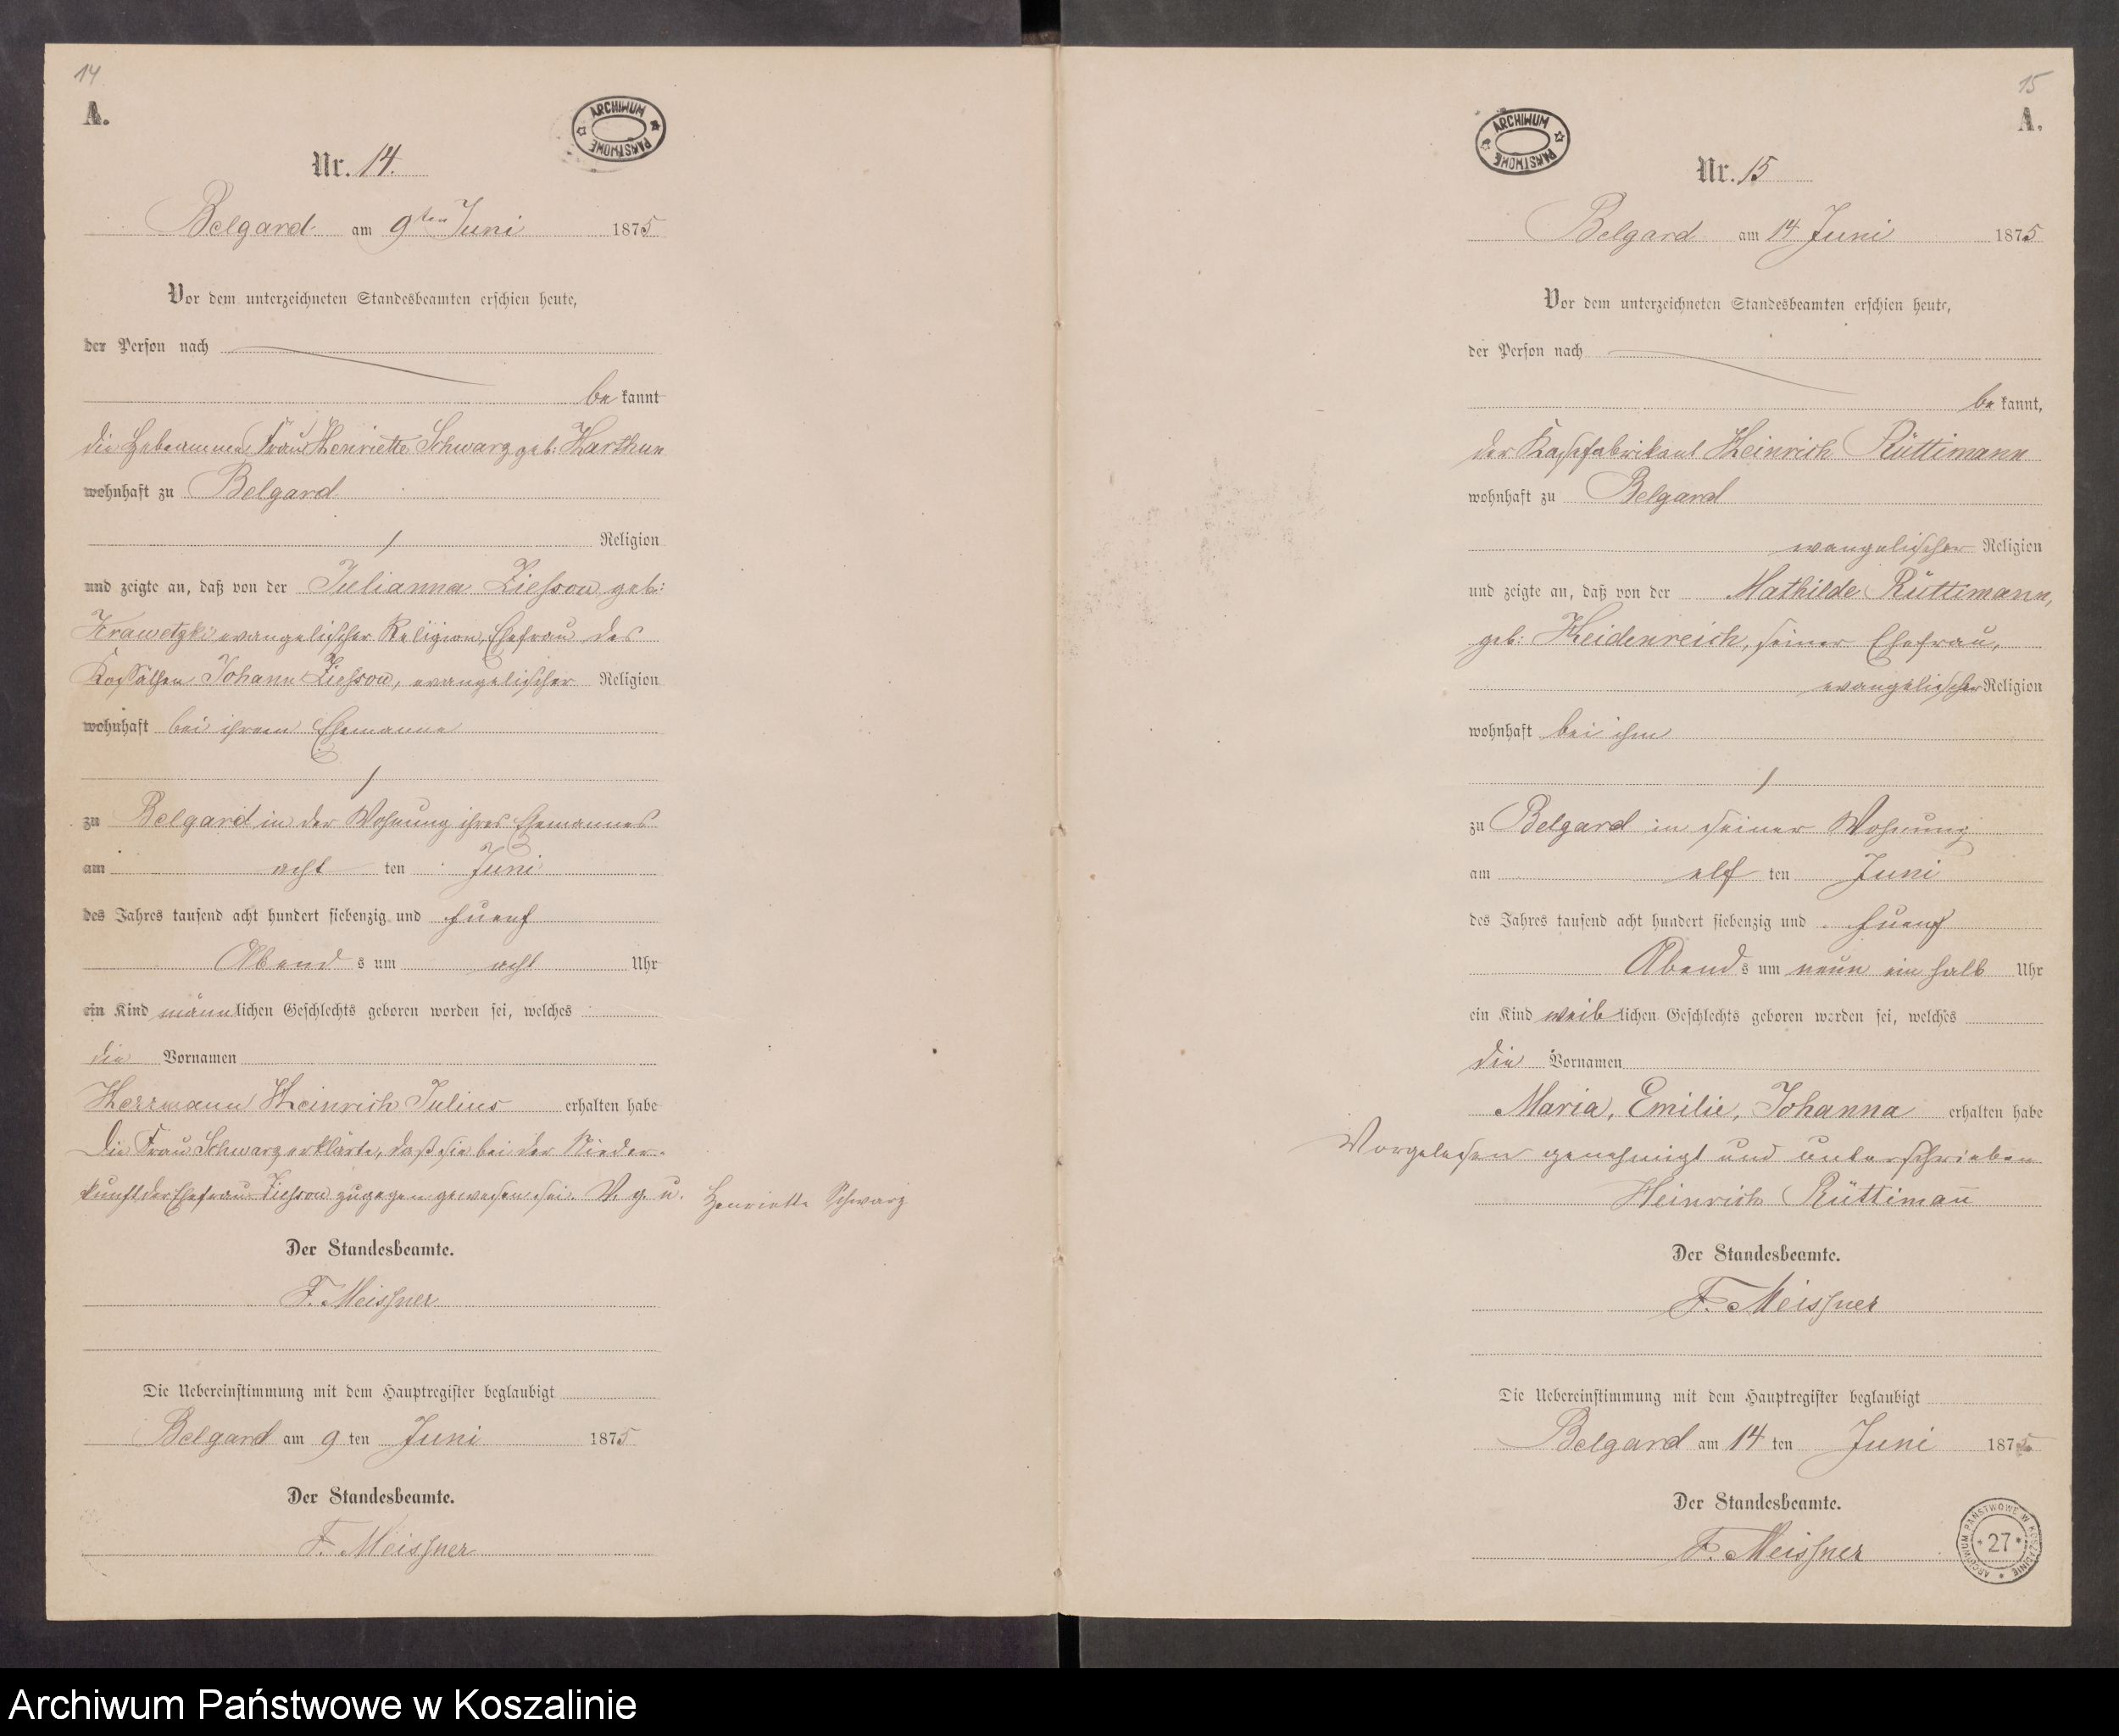 14
A.
ARCHIWUM PAŃSTWOWE
Nr. 14.
Belgard am 9ten Juni 1875
Vor dem unterzeichneten Standesbeamten erschien heute,
der Person nach
be kannt
die Hebeamme Frau Henriette Schwarz geb: Harthun
wohnhaft zu Belgard
Religion
und zeigte an, daß von der Julianna Ziehsow geb:
Krawetzki evangelischer Religion, Ehefrau des
Kossäthen Johann Ziehsow, evangelischer Religion
wohnhaft bei ihrem Ehemanne
zu Belgard in der Wohnung ihres Ehemannes
am acht ten Juni
des Jahres tausend acht hundert siebenzig und fuenf
Abend s um acht Uhr
ein Kind männlichen Geschlechts geboren worden sei, welches
die Vornamen
Herrmann Heinrich Julius erhalten habe
Die Frau Schwarz erklärte, daß sie bei der Nieder-
kunft der Ehefrau Ziehsow zugegen gewesen sei. V. g. u. Henriette Schwarz
Der Standesbeamte.
F. Meissner
Die Uebereinstimmung mit dem Hauptregister beglaubigt
Belgard am 9 ten Juni 1875
Der Standesbeamte.
F. Meissner
15
A.
ARCHIWUM PAŃSTWOWE
Nr. 15
Belgard am 14 Juni 1875
Vor dem unterzeichneten Standesbeamten erschien heute,
der Person nach
be kannt,
der Käsefabrikant Heinrich Rüttimann
wohnhaft zu Belgard
evangelischer Religion
und zeigte an, daß von der Mathilde Rüttimann,
geb: Heidenreich, seiner Ehefrau,
evangelischer Religion
wohnhaft bei ihm
zu Belgard in seiner Wohnung
am elf ten Juni
des Jahres tausend acht hundert siebenzig und fuenf
Abend s um neun ein halb Uhr
ein Kind weib lichen Geschlechts geboren worden sei, welches
die Vornamen
Maria, Emilie, Johanna erhalten habe
Vorgelesen genehmigt und unterschrieben
Heinrich Rüttimañ
Der Standesbeamte.
F. Meissner
Die Uebereinstimmung mit dem Hauptregister beglaubigt
Belgard am 14 ten Juni 1875
Der Standesbeamte.
F. Meissner
ARCHIWUM PAŃSTWOWE W KOSZALINIE
* 27 *
Archiwum Państwowe w Koszalinie